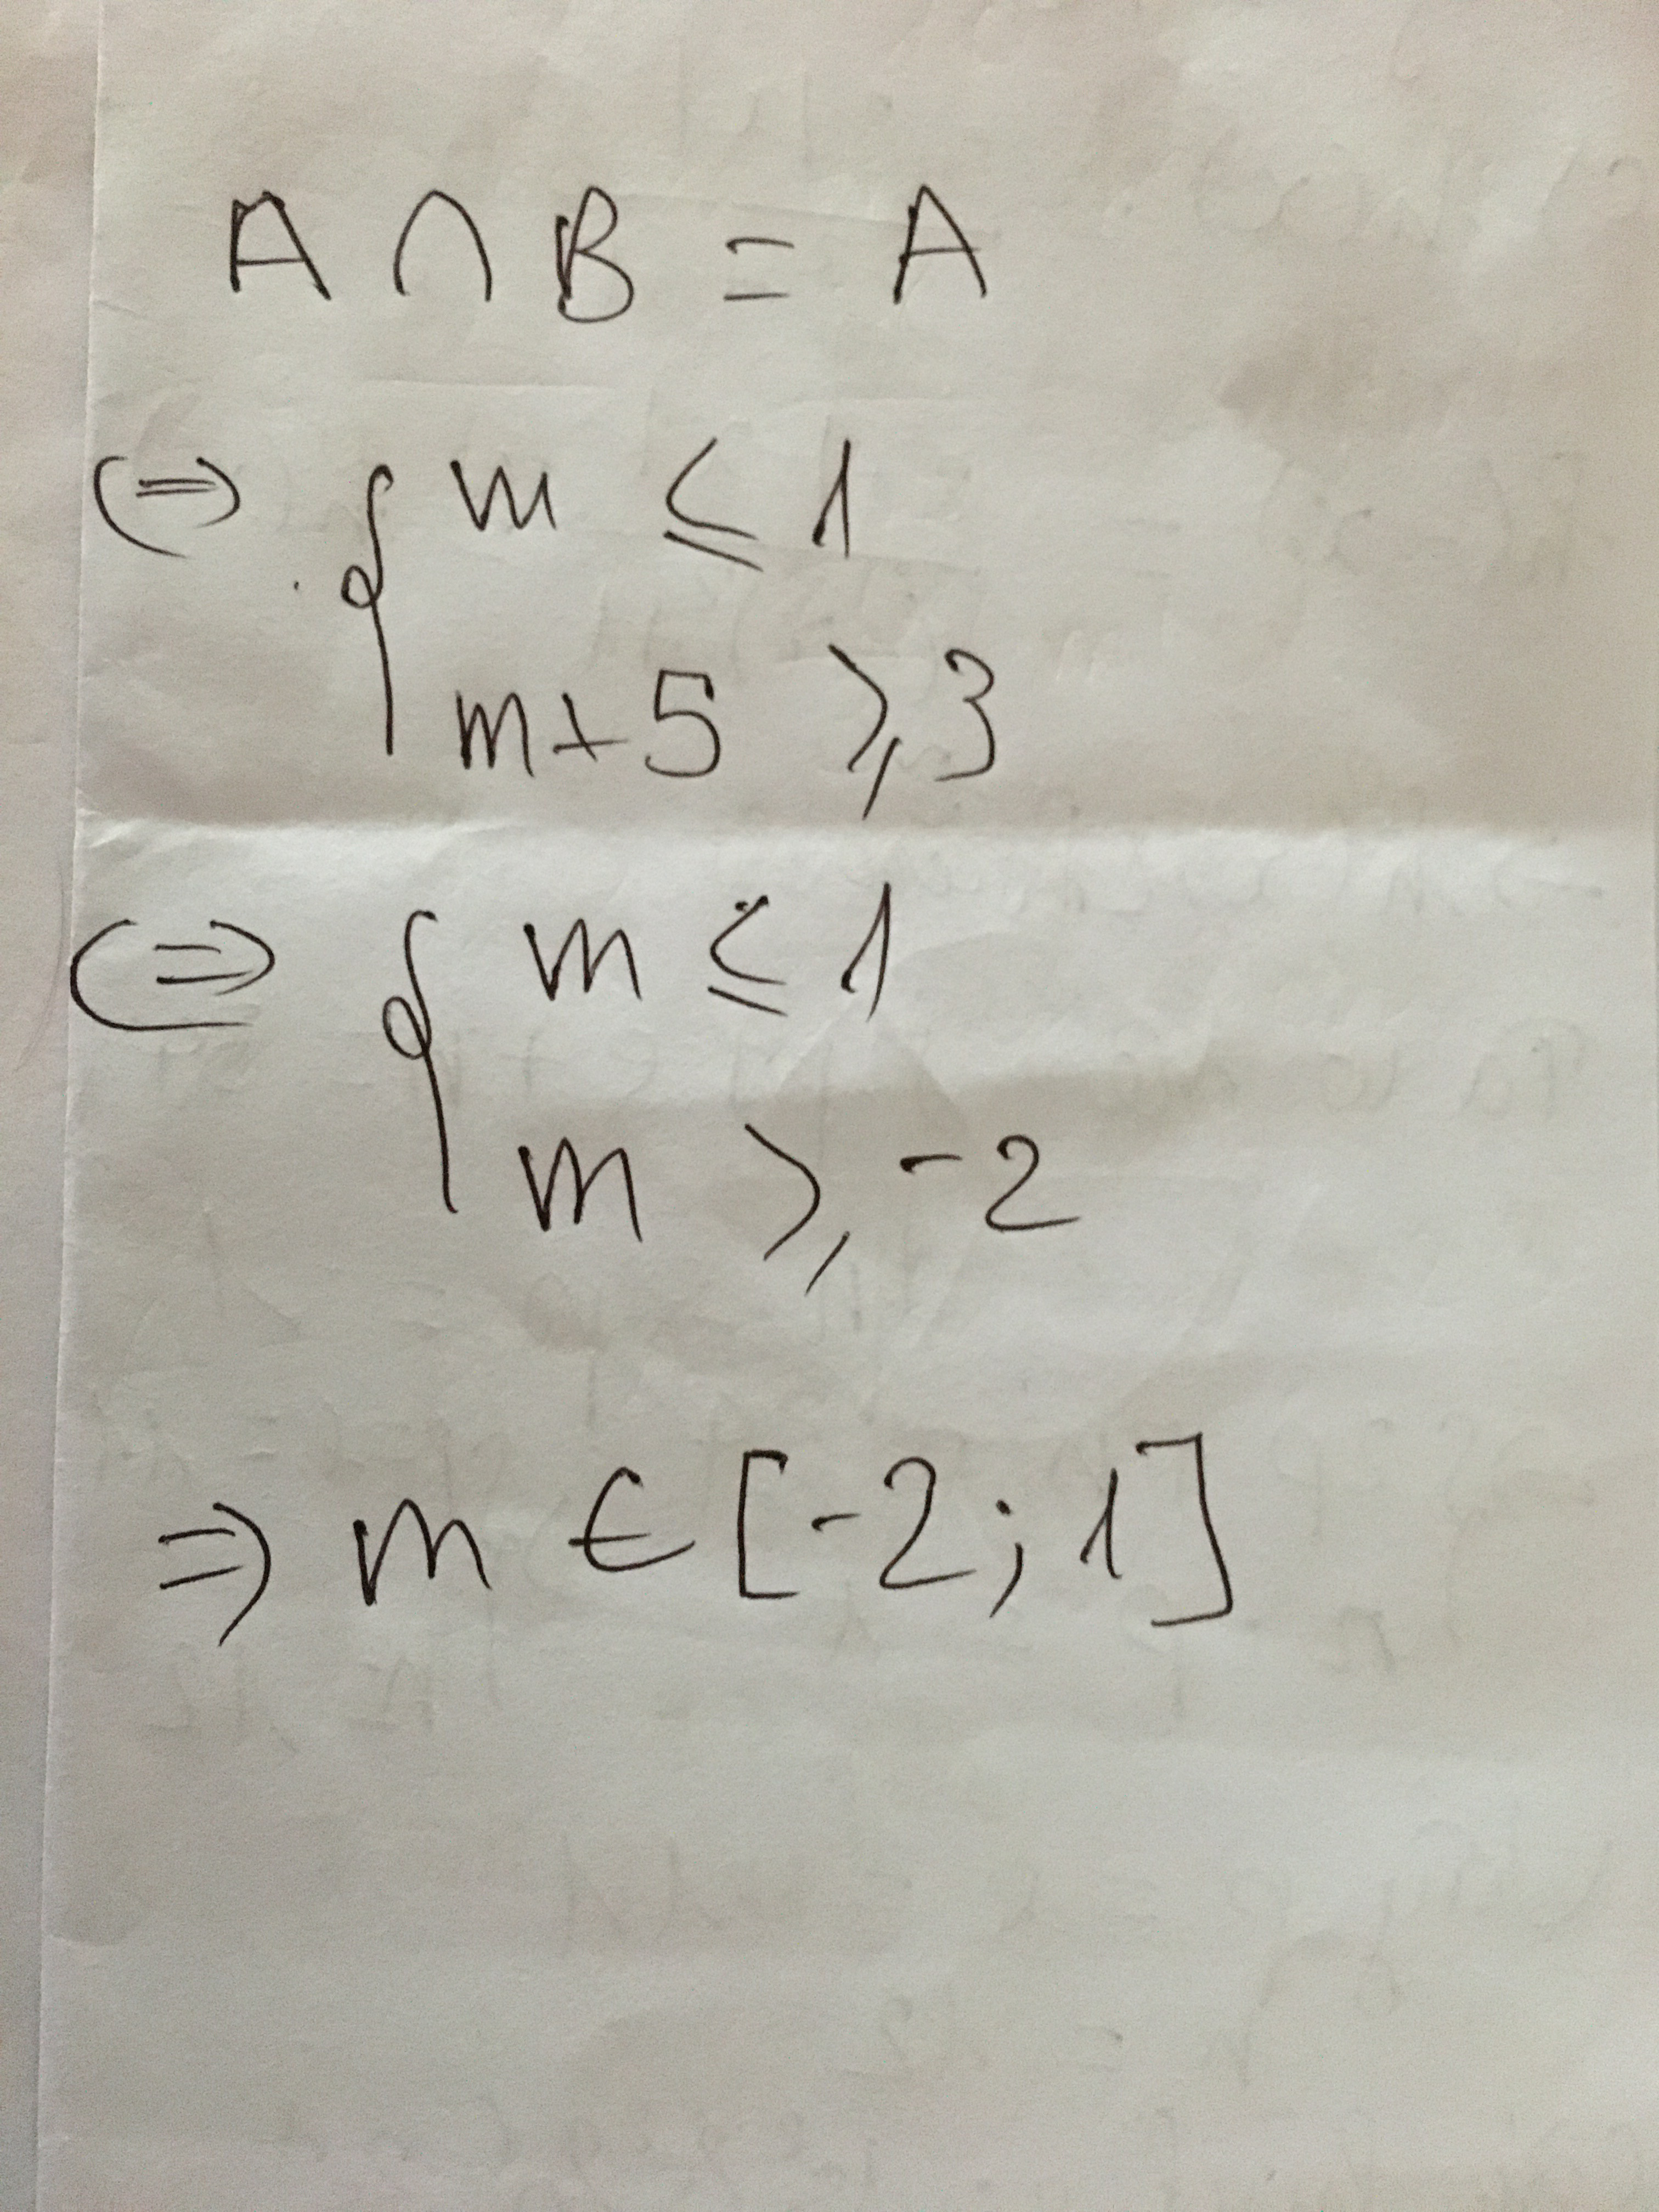 A ∩ B = A
⇔ { m ≤ 1
m + 5 ≥ 3
⇔ { m ≤ 1
m ≥ -2
⇒ m ∈ [-2; 1]